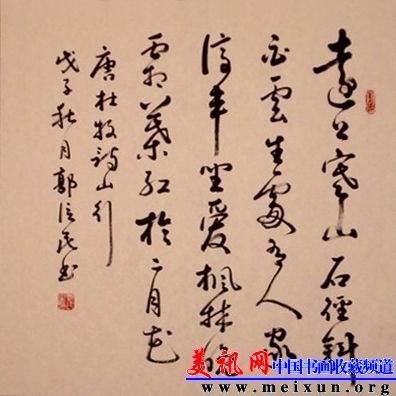 遠上寒山石徑斜
白雲生處有人家
停車坐愛楓林晚
霜葉紅於二月花
唐杜牧詩山行
戊子秋月郭信民书
美讯网 中国书画收藏频道
www.meixun.org